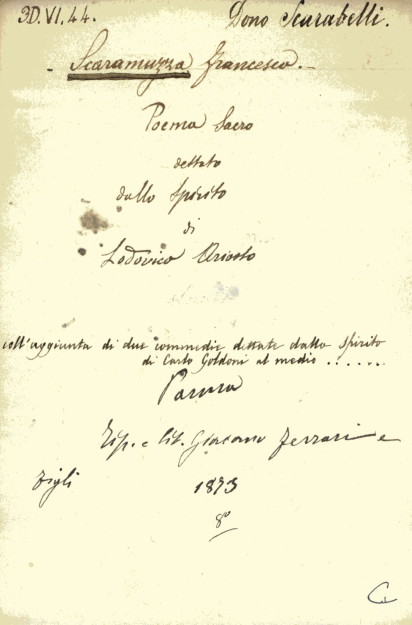 3D.VI.44. Dono Scarabelli.
Scaramuzza Francesco.
Poema Sacro
dettato
dallo Spirito
di
Lodovico Ariosto
coll'aggiunta di due commedie dettate dallo Spirito
di Carlo Goldoni al medio ......
Parma
Tip. e lit. Giacomo Ferrari e
Figli 1873
8°